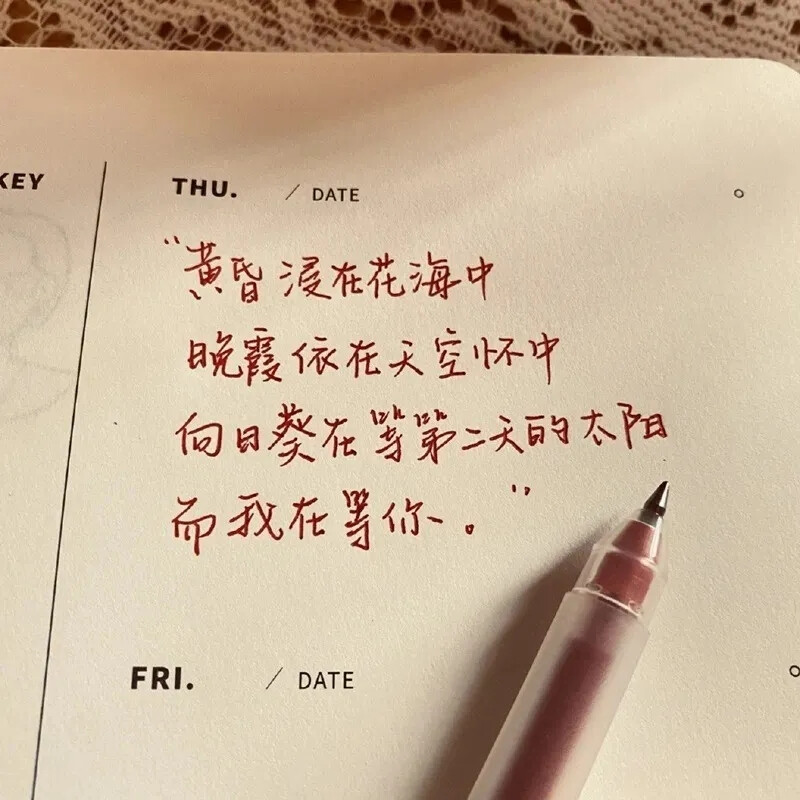 KEY
THU. / DATE
“黄昏浸在花海中
晚霞依在天空怀中
向日葵在等第二天的太阳
而我在等你。”
FRI. / DATE